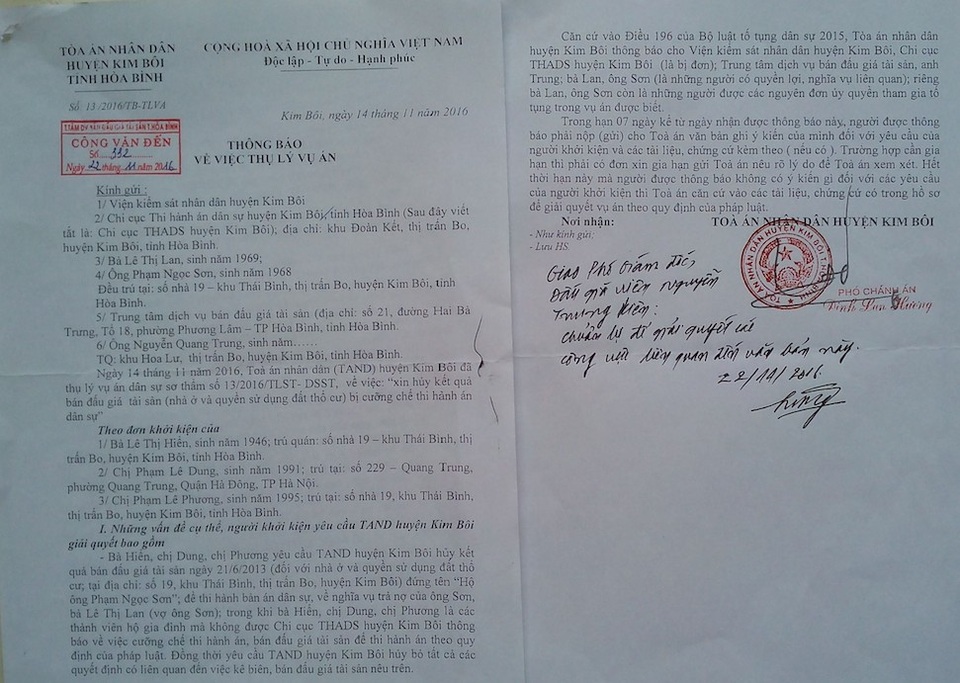 TÒA ÁN NHÂN DÂN
HUYỆN KIM BÔI
TỈNH HÒA BÌNH
Số 13/2016/TB-TLVA
CỘNG HOÀ XÃ HỘI CHỦ NGHĨA VIỆT NAM
Độc lập - Tự do - Hạnh phúc
Kim Bôi, ngày 14 tháng 11 năm 2016
T.TÂM DV BÁN ĐẤU GIÁ TÀI SẢN T.HÒA BÌNH
CÔNG VĂN ĐẾN
Số 332
Ngày 22 tháng 11 năm 2016
THÔNG BÁO
VỀ VIỆC THỤ LÝ VỤ ÁN
Kính gửi :
1/ Viện kiểm sát nhân dân huyện Kim Bôi
2/ Chi cục Thi hành án dân sự huyện Kim Bôi, tỉnh Hòa Bình (Sau đây viết
tắt là: Chi cục THADS huyện Kim Bôi); địa chỉ: khu Đoàn Kết, thị trấn Bo,
huyện Kim Bôi, tỉnh Hòa Bình.
3/ Bà Lê Thị Lan, sinh năm 1969;
4/ Ông Phạm Ngọc Sơn, sinh năm 1968
Đều trú tại: số nhà 19 – khu Thái Bình, thị trấn Bo, huyện Kim Bôi, tỉnh
Hòa Bình.
5/ Trung tâm dịch vụ bán đấu giá tài sản (địa chỉ: số 21, đường Hai Bà
Trưng, Tổ 18, phường Phương Lâm – TP Hòa Bình, tỉnh Hòa Bình.
6/ Ông Nguyễn Quang Trung, sinh năm……
TQ: khu Hoa Lư, thị trấn Bo, huyện Kim Bôi, tỉnh Hòa Bình.
Ngày 14 tháng 11 năm 2016, Toà án nhân dân (TAND) huyện Kim Bôi đã
thụ lý vụ án dân sự sơ thẩm số 13/2016/TLST- DSST, về việc: “xin hủy kết quả
bán đấu giá tài sản (nhà ở và quyền sử dụng đất thổ cư) bị cưỡng chế thi hành án
dân sự”
Theo đơn khởi kiện của
1/ Bà Lê Thị Hiền, sinh năm 1946; trú quán: số nhà 19 – khu Thái Bình, thị
trấn Bo, huyện Kim Bôi, tỉnh Hòa Bình.
2/ Chị Phạm Lê Dung, sinh năm 1991; trú tại: số 229 – Quang Trung,
phường Quang Trung, Quận Hà Đông, TP Hà Nội.
3/ Chị Phạm Lê Phương, sinh năm 1995; trú tại: số nhà 19, khu Thái Bình,
thị trấn Bo, huyện Kim Bôi, tỉnh Hòa Bình.
I. Những vấn đề cụ thể, người khởi kiện yêu cầu TAND huyện Kim Bôi
giải quyết bao gồm
- Bà Hiền, chị Dung, chị Phương yêu cầu TAND huyện Kim Bôi hủy kết
quả bán đấu giá tài sản ngày 21/6/2013 (đối với nhà ở và quyền sử dụng đất thổ
cư; tại địa chỉ: số 19, khu Thái Bình, thị trấn Bo, huyện Kim Bôi) đứng tên “Hộ
ông Phạm Ngọc Sơn”; để thi hành bản án dân sự, về nghĩa vụ trả nợ của ông Sơn,
bà Lê Thị Lan (vợ ông Sơn); trong khi bà Hiền, chị Dung, chị Phương là các
thành viên hộ gia đình mà không được Chi cục THADS huyện Kim Bôi thông
báo về việc cưỡng chế thi hành án, bán đấu giá tài sản để thi hành án theo quy
định của pháp luật. Đồng thời yêu cầu TAND huyện Kim Bôi hủy bỏ tất cả các
quyết định có liên quan đến việc kê biên, bán đấu giá tài sản nêu trên.
Căn cứ vào Điều 196 của Bộ luật tố tụng dân sự 2015, Tòa án nhân dân
huyện Kim Bôi thông báo cho Viện kiểm sát nhân dân huyện Kim Bôi, Chi cục
THADS huyện Kim Bôi (là bị đơn); Trung tâm dịch vụ bán đấu giá tài sản, anh
Trung; bà Lan, ông Sơn (là những người có quyền lợi, nghĩa vụ liên quan); riêng
bà Lan, ông Sơn còn là những người được các nguyên đơn ủy quyền tham gia tố
tụng trong vụ án được biết.
Trong hạn 07 ngày kể từ ngày nhận được thông báo này, người được thông
báo phải nộp (gửi) cho Toà án văn bản ghi ý kiến của mình đối với yêu cầu của
người khởi kiện và các tài liệu, chứng cứ kèm theo ( nếu có ). Trường hợp cần gia
hạn thì phải có đơn xin gia hạn gửi Toà án nêu rõ lý do để Toà án xem xét. Hết
thời hạn này mà người được thông báo không có ý kiến gì đối với các yêu cầu
của người khởi kiện thì Toà án căn cứ vào các tài liệu, chứng cứ có trong hồ sơ
để giải quyết vụ án theo quy định của pháp luật.
Nơi nhận:
- Như kính gửi;
- Lưu HS.
TOÀ ÁN NHÂN DÂN HUYỆN KIM BÔI
TOÀ ÁN NHÂN DÂN HUYỆN KIM BÔI T.HÒA BÌNH
PHÓ CHÁNH ÁN
Giao Phó Giám đốc,
Đấu giá viên Nguyễn
Trường Kiên:
chuẩn bị để giải quyết các
công việc liên quan đến văn bản này.
22/11/2016